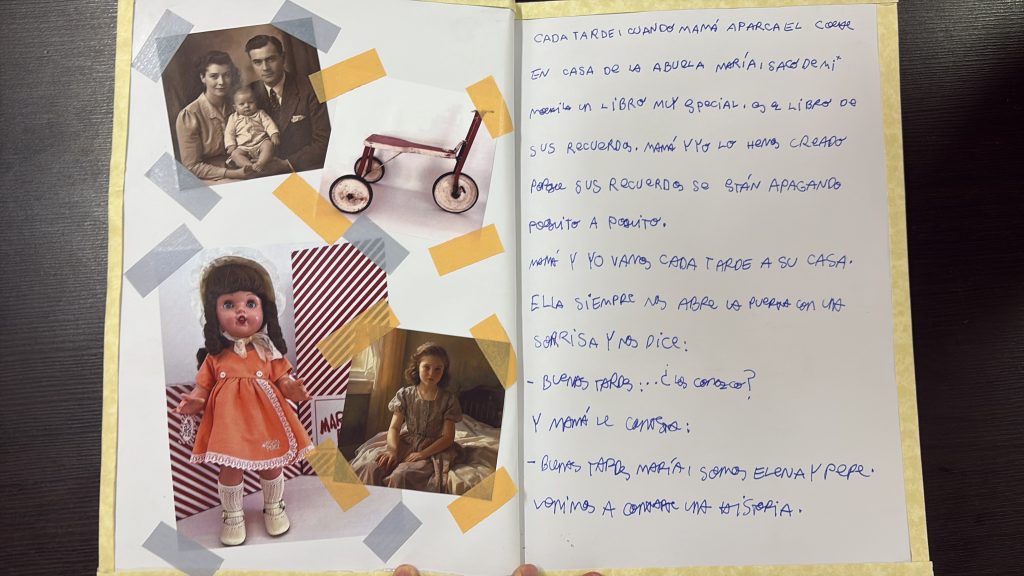 MAR
CADA TARDE, CUANDO MAMÁ APARCA EL COCHE
EN CASA DE LA ABUELA MARÍA, SACO DE MI
MOCHILA UN LIBRO MUY ESPECIAL. ES EL LIBRO DE
SUS RECUERDOS. MAMÁ Y YO LO HEMOS CREADO
PORQUE SUS RECUERDOS SE ESTÁN APAGANDO
POQUITO A POQUITO.
MAMÁ Y YO VAMOS CADA TARDE A SU CASA.
ELLA SIEMPRE NOS ABRE LA PUERTA CON UNA
SONRISA Y NOS DICE:
- BUENAS TARDES... ¿LOS CONOZCO?
Y MAMÁ LE CONTESTA:
- BUENAS TARDES MARÍA, SOMOS ELENA Y PEPE.
VENIMOS A CONTARTE UNA HISTORIA.